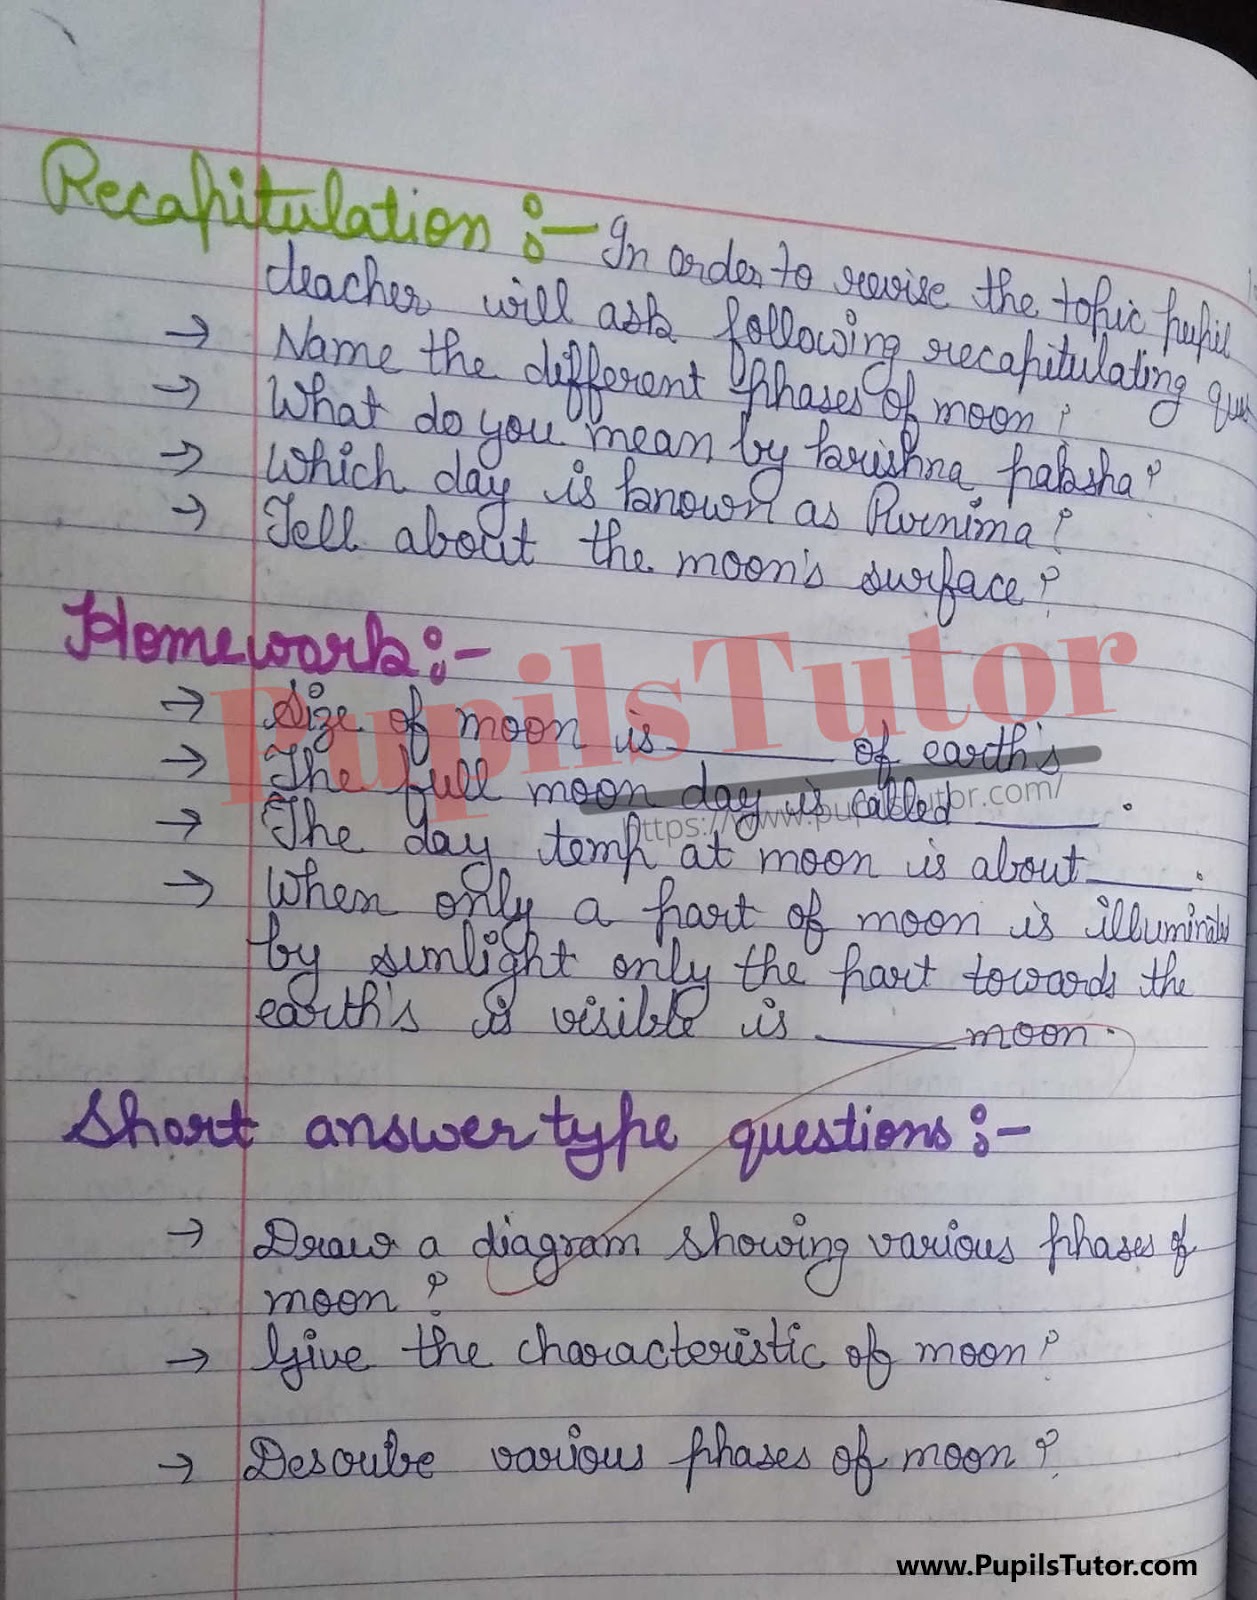 Recapitulation :- In order to revise the topic pupil
teacher will ask following recapitulating ques
→ Name the different phases of moon?
→ What do you mean by krishna paksha?
→ Which day is known as Purnima?
→ Tell about the moon's surface?
Homework:-
→ Size of moon is ______ of earth's
→ The full moon day is called ______ .
→ The day temp at moon is about ______ .
→ When only a part of moon is illuminated
by sunlight only the part towards the
earth's is visible is ______ moon.
Short answer type questions:-
→ Draw a diagram showing various phases of
moon?
→ Give the characteristic of moon?
→ Descube various phases of moon?
PupilsTutor
https://www.pupilstutor.com/
www.PupilsTutor.com